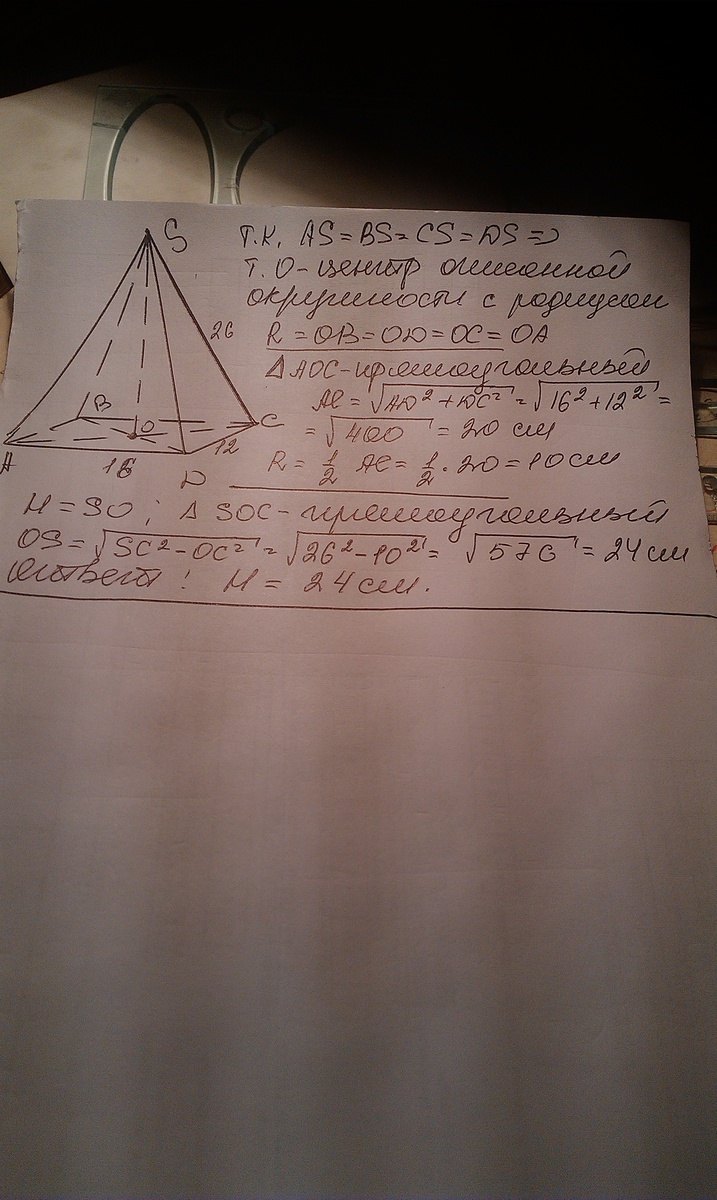 S
26
B
O
C
12
A
16
D
Т.К. AS = BS = CS = DS =>
т. О - центр описанной
окружности с радиусом
R = OB = OD = OC = OA
Δ ADC - прямоугольный
AC = √AD² + DC² = √16² + 12² =
= √400 = 20 см
R = 1/2 AC = 1/2 · 20 = 10 см
H = SO ; Δ SOC - прямоугольный
OS = √SC² - OC² = √26² - 10² = √576 = 24 см
Ответ: H = 24 см.